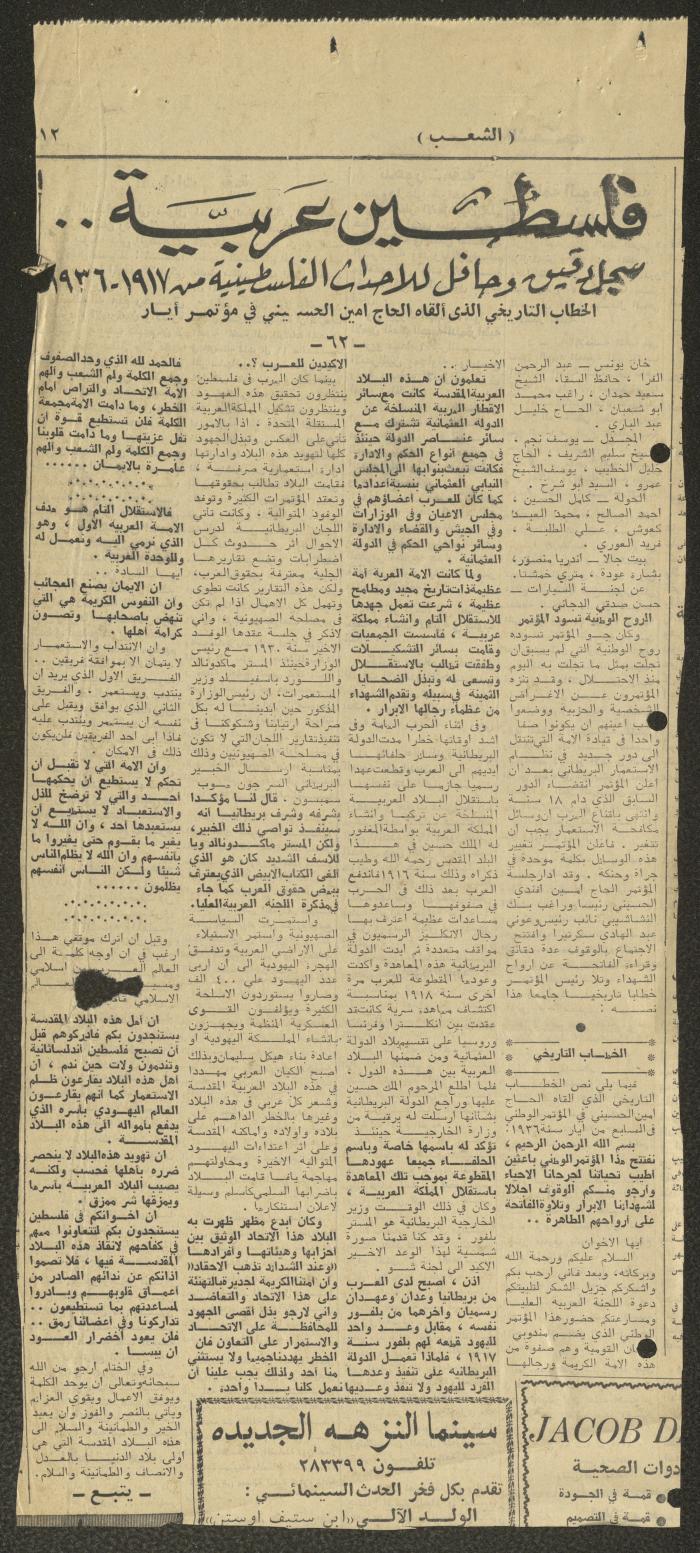 ( الشعب )
١٢
فلسطين عربية ..
سجل دقيق وحافل للاحداث الفلسطينية من ١٩١٧-١٩٣٦
الخطاب التاريخي الذى القاه الحاج امين الحسيني في مؤتمر أيار
- ٦٢ -
خان يونس - عبد الرحمن
الفرا ، حافظ السقا، الشيخ
سعيد حمدان ، راغب محمد
ابو شعبان ، الحاج خليل
عبد الباري .
المجدل - يوسف نجم ،
الشيخ سليم الشريف ، الحاج
خليل الخطيب ، يوسف الشيخ
عمرو ، السيد ابو شرخ .
الحولة - كامل الحسين ،
احمد الصالح ، محمد العبد
كعوش ، علي الطلبة ،
فريد الخوري .
بيت جالا - اندريا منصور،
بشارة عودة ، متري خمشتا.
عن لجنة السيارات -
حسن صدقي الدجاني .
الروح الوطنية تسود المؤتمر
وكان جو المؤتمر تسوده
روح الوطنية التي لم يسبق ان
تجلت بمثل ما تجلت به اليوم
منذ الاحتلال ، وقد تنزه
المؤتمرون عن الاغراض
الشخصية والحزبية ووضعوا
نصب اعينهم ان يكونوا صفا
واحدا في قيادة الامة التي تنتقل
الى دور جديد في نظام
الاستعمار البريطاني بعد ان
اعلن المؤتمر انتهاء الدور
السابق الذي دام ١٨ سنة
وانتهى باقناع العرب ان وسائل
مكافحة الاستعمار يجب ان
تتغير . فاعلن المؤتمر تغيير
هذه الوسايل بكلمة موحدة في
جرأة وحنكة . وقد ادار جلسة
المؤتمر الحاج امين افندي
الحسيني رئيسا وراغب بك
النشاشيبي نائب رئيس وعوني
عبد الهادي سكرتيرا وافتتح
الاجتماع بالوقوف عدة دقائق
وقراءة الفاتحة عن ارواح
الشهداء وتلا رئيس المؤتمر
خطابا تاريخيا جامعا هذا
نصه :
الخطاب التاريخي
فيما يلي نص الخطاب
التاريخي الذي القاه الحاج
امين الحسيني في المؤتمر الوطني
في السابع من ايار سنة ١٩٣٦:
بسم الله الرحمن الرحيم ،
نفتتح هذا المؤتمر الوطني باعثين
اطيب تحياتنا لجرحانا الاحياء
وارجو منكم الوقوف اجلالا
لشهدائنا الابرار وتلاوة الفاتحة
على ارواحهم الطاهرة ..
ايها الاخوان
السلام عليكم ورحمة الله
وبركاته، وبعد فاني ارحب بكم
واشكركم جزيل الشكر لتلبيتكم
دعوة اللجنة العربية العليا
ومسارعتكم حضور هذا المؤتمر
الوطني الذي يضم مندوبي
القومية وهم صفوة من
هذه الامة الكريمة ورجالها
الاخيار ..
تعلمون ان هذه البلاد
العربية المقدسة كانت مع سائر
الاقطار العربية المنسلخة عن
الدولة العثمانية تشترك مع
سائر عناصر الدولة حينئذ
في جميع انواع الحكم والادارة
فكانت تبعث بنوابها الى المجلس
النيابي العثماني بنسبة اعدادها
كما كان للعرب اعضاؤهم في
مجلس الاعيان وفي الوزارات
وفي الجيش والقضاء والادارة
وسائر نواحي الحكم في الدولة
العثمانية .
ولما كانت الامة العربية أمة
عظيمة ذات تاريخ مجيد ومطامح
عظيمة ، شرعت تعمل جهدها
للاستقلال التام وانشاء مملكة
عربية ، فاسست الجمعيات
وقامت بسائر التشكيلات
وطفقت تطالب بالاستقلال
وتسعى له وتبذل الضحايا
الثمينة في سبيله وتقدم الشهداء
من عظماء رجالها الابرار .
وفي اثناء الحرب العامة وفي
اشد اوقاتها خطرا مدت الدولة
البريطانية وسائر حلفائها
ايديهم الى العرب وقطعت عهدا
رسميا جازما على نفسها
باستقلال البلاد العربية
المنسلخة عن تركيا وانشاء
المملكة العربية بواسطة المغفور
له الملك حسين في هذا
البلد المقدس رحمه الله وطيب
ذكراه وذلك سنة ١٩١٦ فاندفع
العرب بعد ذلك في الحرب
في صفوفها وساعدوها
مساعدات عظيمة اعترف بها
رجال الانكليز الرسميون في
مواقف متعددة ثم ايدت الدولة
البريطانية هذه المعاهدة واكدت
وعودها المقطوعة للعرب مرة
اخرى سنة ١٩١٨ بمناسبة
اكتشاف معاهدة سرية كانت قد
عقدت بين انكلترا وفرنسا
وروسيا على تقسيم بلاد الدولة
العثمانية ومن ضمنها البلاد
العربية بين هذه الدول ،
فلما اطلع المرحوم الملك حسين
عليها وراجع الدولة البريطانية
بشأنها ارسلت له برقية من
وزارة الخارجية حينئذ
تؤكد له باسمها خاصة وباسم
الحلفاء جميعا عهودها
المقطوعة بموجب تلك المعاهدة
باستقلال المملكة العربية ،
وكان في ذلك الوقت وزير
الخارجية البريطانية هو المستر
بلفور ، وقد كنا قدمنا صورة
شمسية لهذا الوعد الاخير
الاكيد الى لجنة شو .
اذن ، اصبح لدى العرب
من بريطانيا وعدان وعهدان
رسميان وآخرهما من بلفور
نفسه ، مقابل وعد واحد
لليهود قطعه لهم بلفور سنة
١٩١٧ ، فلماذا تعمل الدولة
البريطانية على تنفيذ وعدها
الفرد لليهود ولا تنفذ وعديها
الاكيدين للعرب ؟..
بينما كان العرب في فلسطين
ينتظرون تحقيق هذه العهود
وينتظرون تشكيل المملكة العربية
المستقلة المتحدة ، اذا بالامور
تأتي على العكس وتبذل الجهود
كلها لتهويد هذه البلاد وادارتها
ادارة استعمارية صرفة ،
فقامت البلاد تطالب بحقوقها
وتعقد المؤتمرات الكثيرة وتوفد
الوفود المتوالية ، وكانت تأتي
اللجان البريطانية لدرس
الاحوال اثر حدوث كل
اضطرابات وتضع تقاريرها
الجلية معترفة بحقوق العرب،
ولكن هذه التقارير كانت تطوى
وتهمل كل الاهمال اذا لم تكن
في مصلحة الصهيونية ، واني
لاذكر في جلسة عقدها الوفد
الاخير سنة ١٩٣٠ مع رئيس
الوزارة حينئذ المستر ماكدونالد
واللورد باسفيلد وزير
المستعمرات، ان رئيس الوزارة
المذكور حين ابدينا له بكل
صراحة ارتيابنا وشكوكنا في
تنفيذ تقارير اللجان التي لا تكون
في مصلحة الصهيونيين وذلك
بمناسبة ارسال الخبير
البريطاني السر جون هوب
سمبسون . قال لنا مؤكدا
بشرفه وشرف بريطانيا انه
سينفذ تواصي ذلك الخبير،
ولكن المستر ماكدونالد ويا
للاسف الشديد كان هو الذي
الغى الكتاب الابيض الذي يعترف
ببعض حقوق العرب كما جاء
في مذكرة اللجنة العربية العليا.
واستمرت السياسة
الصهيونية واستمر الاستيلاء
على الاراضي العربية وتدفق
الهجرة اليهودية الى ان اربى
عدد اليهود على ٤٠٠ الف
وصاروا يستوردون الاسلحة
الكثيرة ويؤلفون القوى
العسكرية المنظمة ويجهزون
بانشاء المملكة اليهودية او
اعادة بناء هيكل سليمان وبذلك
اصبح الكيان العربي مهددا
في هذه البلاد العربية المقدسة
وشعر كل عربي في هذه البلاد
وغيرها بالخطر الداهم على
بلاده واولاده واماكنه المقدسة
وعلى اثر اعتداءات اليهود
المتوالية الاخيرة ومحاولتهم
مهاجمة يافا قامت البلاد
باضرابها السلمي كاسلم وسيلة
لاعلان استنكارها .
وكان ابدع مظهر ظهرت به
البلاد هذا الاتحاد الوثيق بين
احزابها وهيئاتها وافرادها
«وعند الشدائد تذهب الاحقاد»
وان امتنا الكريمة لجديرة بالتهنئة
على هذا الاتحاد والتعاضد
واني لارجو بذل اقصى الجهود
للمحافظة على الاتحاد
والاستمرار على التعاون فان
الخطر يهددنا جميعا ولا يستثني
منا احد ولذلك يجب علينا ان
نعمل كلنا يدا واحدة .
فالحمد لله الذي وحد الصفوف
وجمع الكلمة ولم الشعب والهم
الامة الاتحاد والتراص امام
الخطر، وما دامت الامة مجمعة
الكلمة فلن تستطيع قوة ان
تفل عزيمتها وما دامت قلوبنا
وجمع الكلمة ولم الشعب والهم
عامرة بالايمان ......
فالاستقلال التام هو هدف
الامة العربية الاول ، وهو
الذي نرمي اليه ونعمل له
وللوحدة العربية .
أيها السادة ..
ان الايمان يصنع العجائب
وان النفوس الكريمة هي التي
تنهض باصحابها وتصون
كرامة اهلها .
وان الانتداب والاستعمار
لا يتمان الا بموافقة فريقين ..
الفريق الاول الذي يريد ان
ينتدب ويستعمر . والفريق
الثاني الذي يوافق ويقبل على
نفسه ان يستعمر وينتدب عليه
فاذا ابى احد الفريقين فلن يكون
ذلك في الامكان .
وان الامة التي لا تقبل ان
تحكم لا يستطيع ان يحكمها
احد والتي لا ترضخ للذل
والاستعباد لا يستطيع ان
يستعبدها احد ، وان الله لا
يغير ما بقوم حتى يغيروا ما
بانفسهم وان الله لا يظلم الناس
شيئا ولكن الناس انفسهم
يظلمون ......
وقبل ان اترك موقفي هذا
ارغب في ان اوجه كلمة الى
العالم اسلامي
الاسلامي
ان اهل هذه البلاد المقدسة
يستنجدون بكم فادركوهم قبل
أن تصبح فلسطين اندلسا ثانية
وتندمون ولات حين ندم ، ان
أهل هذه البلاد يقارعون ظلم
الاستعمار كما أنهم يقارعون
العالم اليهودي بأسره الذي
يدفع بأمواله الى هذه البلاد
المقدسة .
ان تهويد هذه البلاد لا ينحصر
ضرره بأهلها فحسب ولكنه
يصيب البلاد العربية بأسرها
ويمزقها شر ممزق .
ان اخوانكم في فلسطين
يستنجدون بكم لتتعاونوا معهم
في كفاحهم لانقاذ هذه البلاد
المقدسة فيها ، فلا تصموا
آذانكم عن ندائهم الصادر من
أعماق قلوبهم وبادروا
لمساعدتهم بما تستطيعون ..
تداركونا وفي أعضائنا رمق ..
فلن يعود اخضرار العود
ان يبسا .
وفي الختام ارجو من الله
سبحانه وتعالى ان يوحد الكلمة
ويوفق الاعمال ويقوي العزائم
ويأتي بالنصر والفوز وان يعيد
الخير والطمأنينة والسلام الى
هذه البلاد المقدسة التي هي
اولى بلاد الدنيا بالعدل
والانصاف والطمأنينة والسلام.
- يتبع -
سينما النزهه الجديده
تلفون ٢٨٣٣٩٩
تقدم بكل فخر الحدث السينمائي :
الولد الآلي «ابن ستيف اوستن»
JACOB D
دوات الصحية
قمة في الجودة
قمة في التصميم